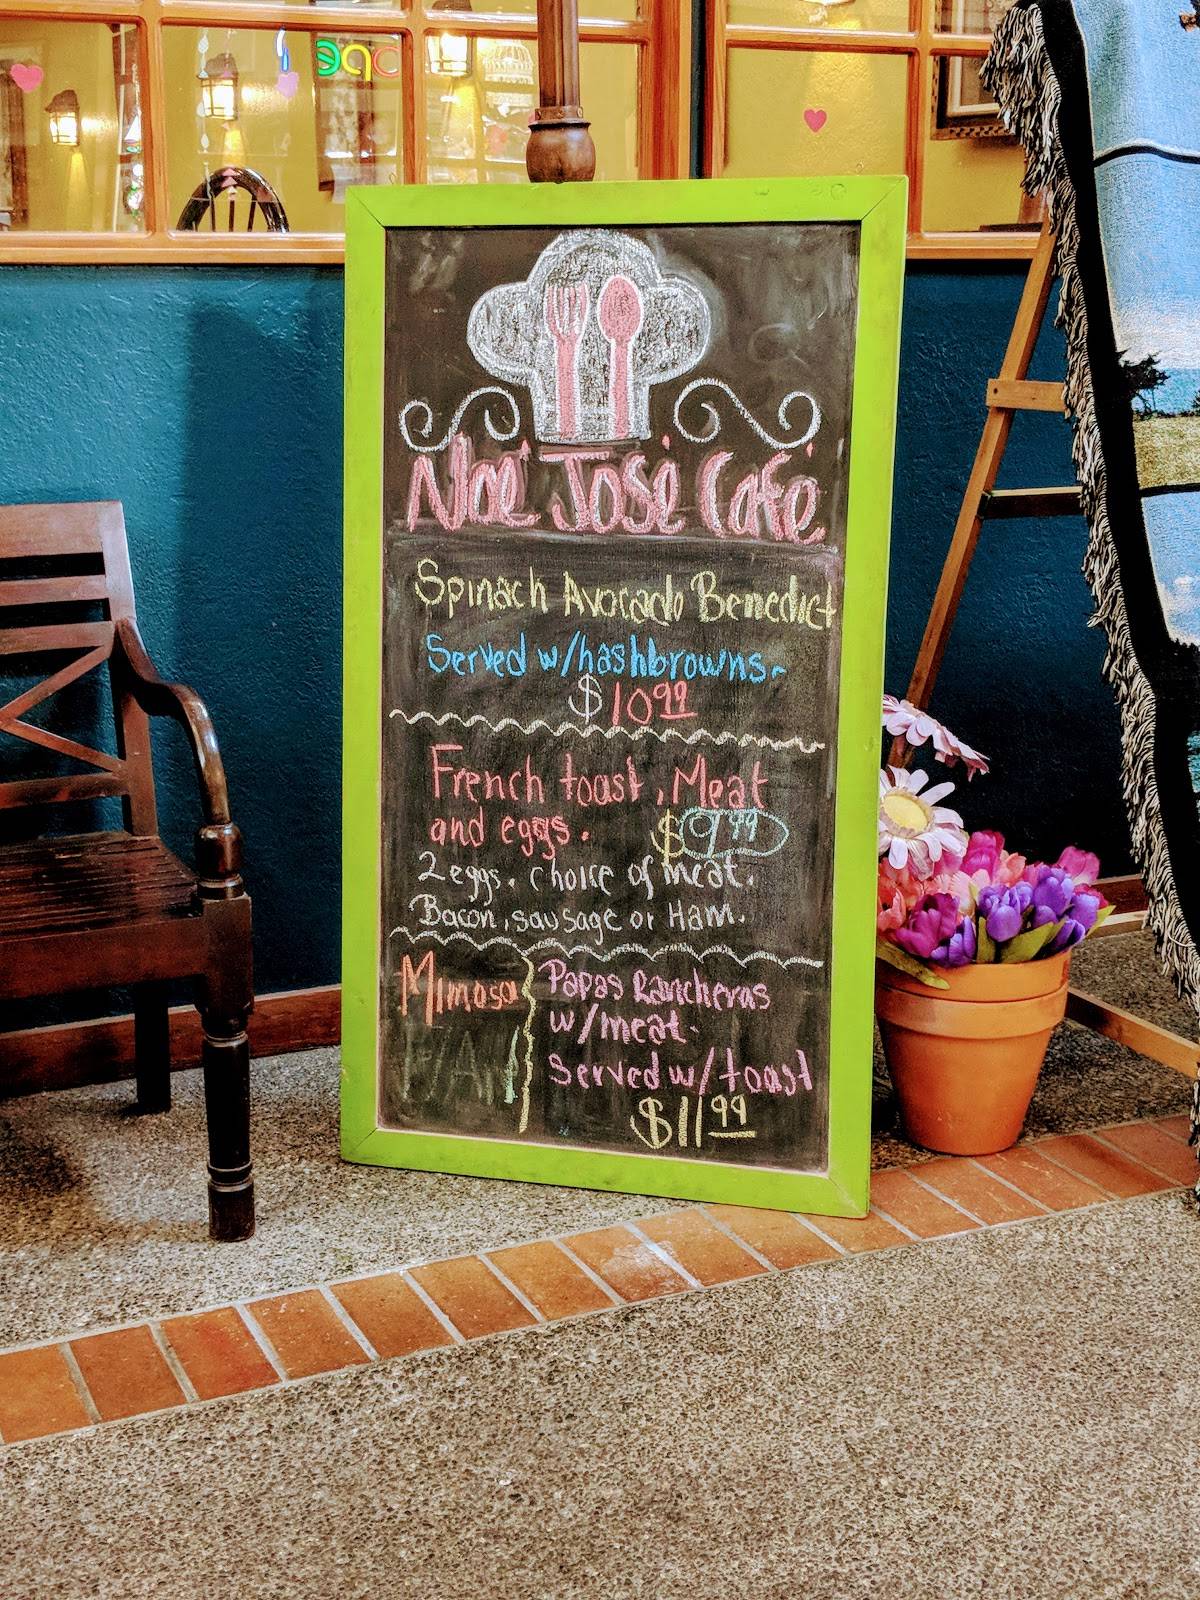 open
Noe José Café
Spinach Avocado Benedict
Served w/hashbrowns.
$10.99
French toast, Meat
and eggs. $9.99
2 eggs. choice of meat.
Bacon, sausage or Ham.
Mimosa
Papas Rancheras
w/meat.
Served w/toast
$11.99